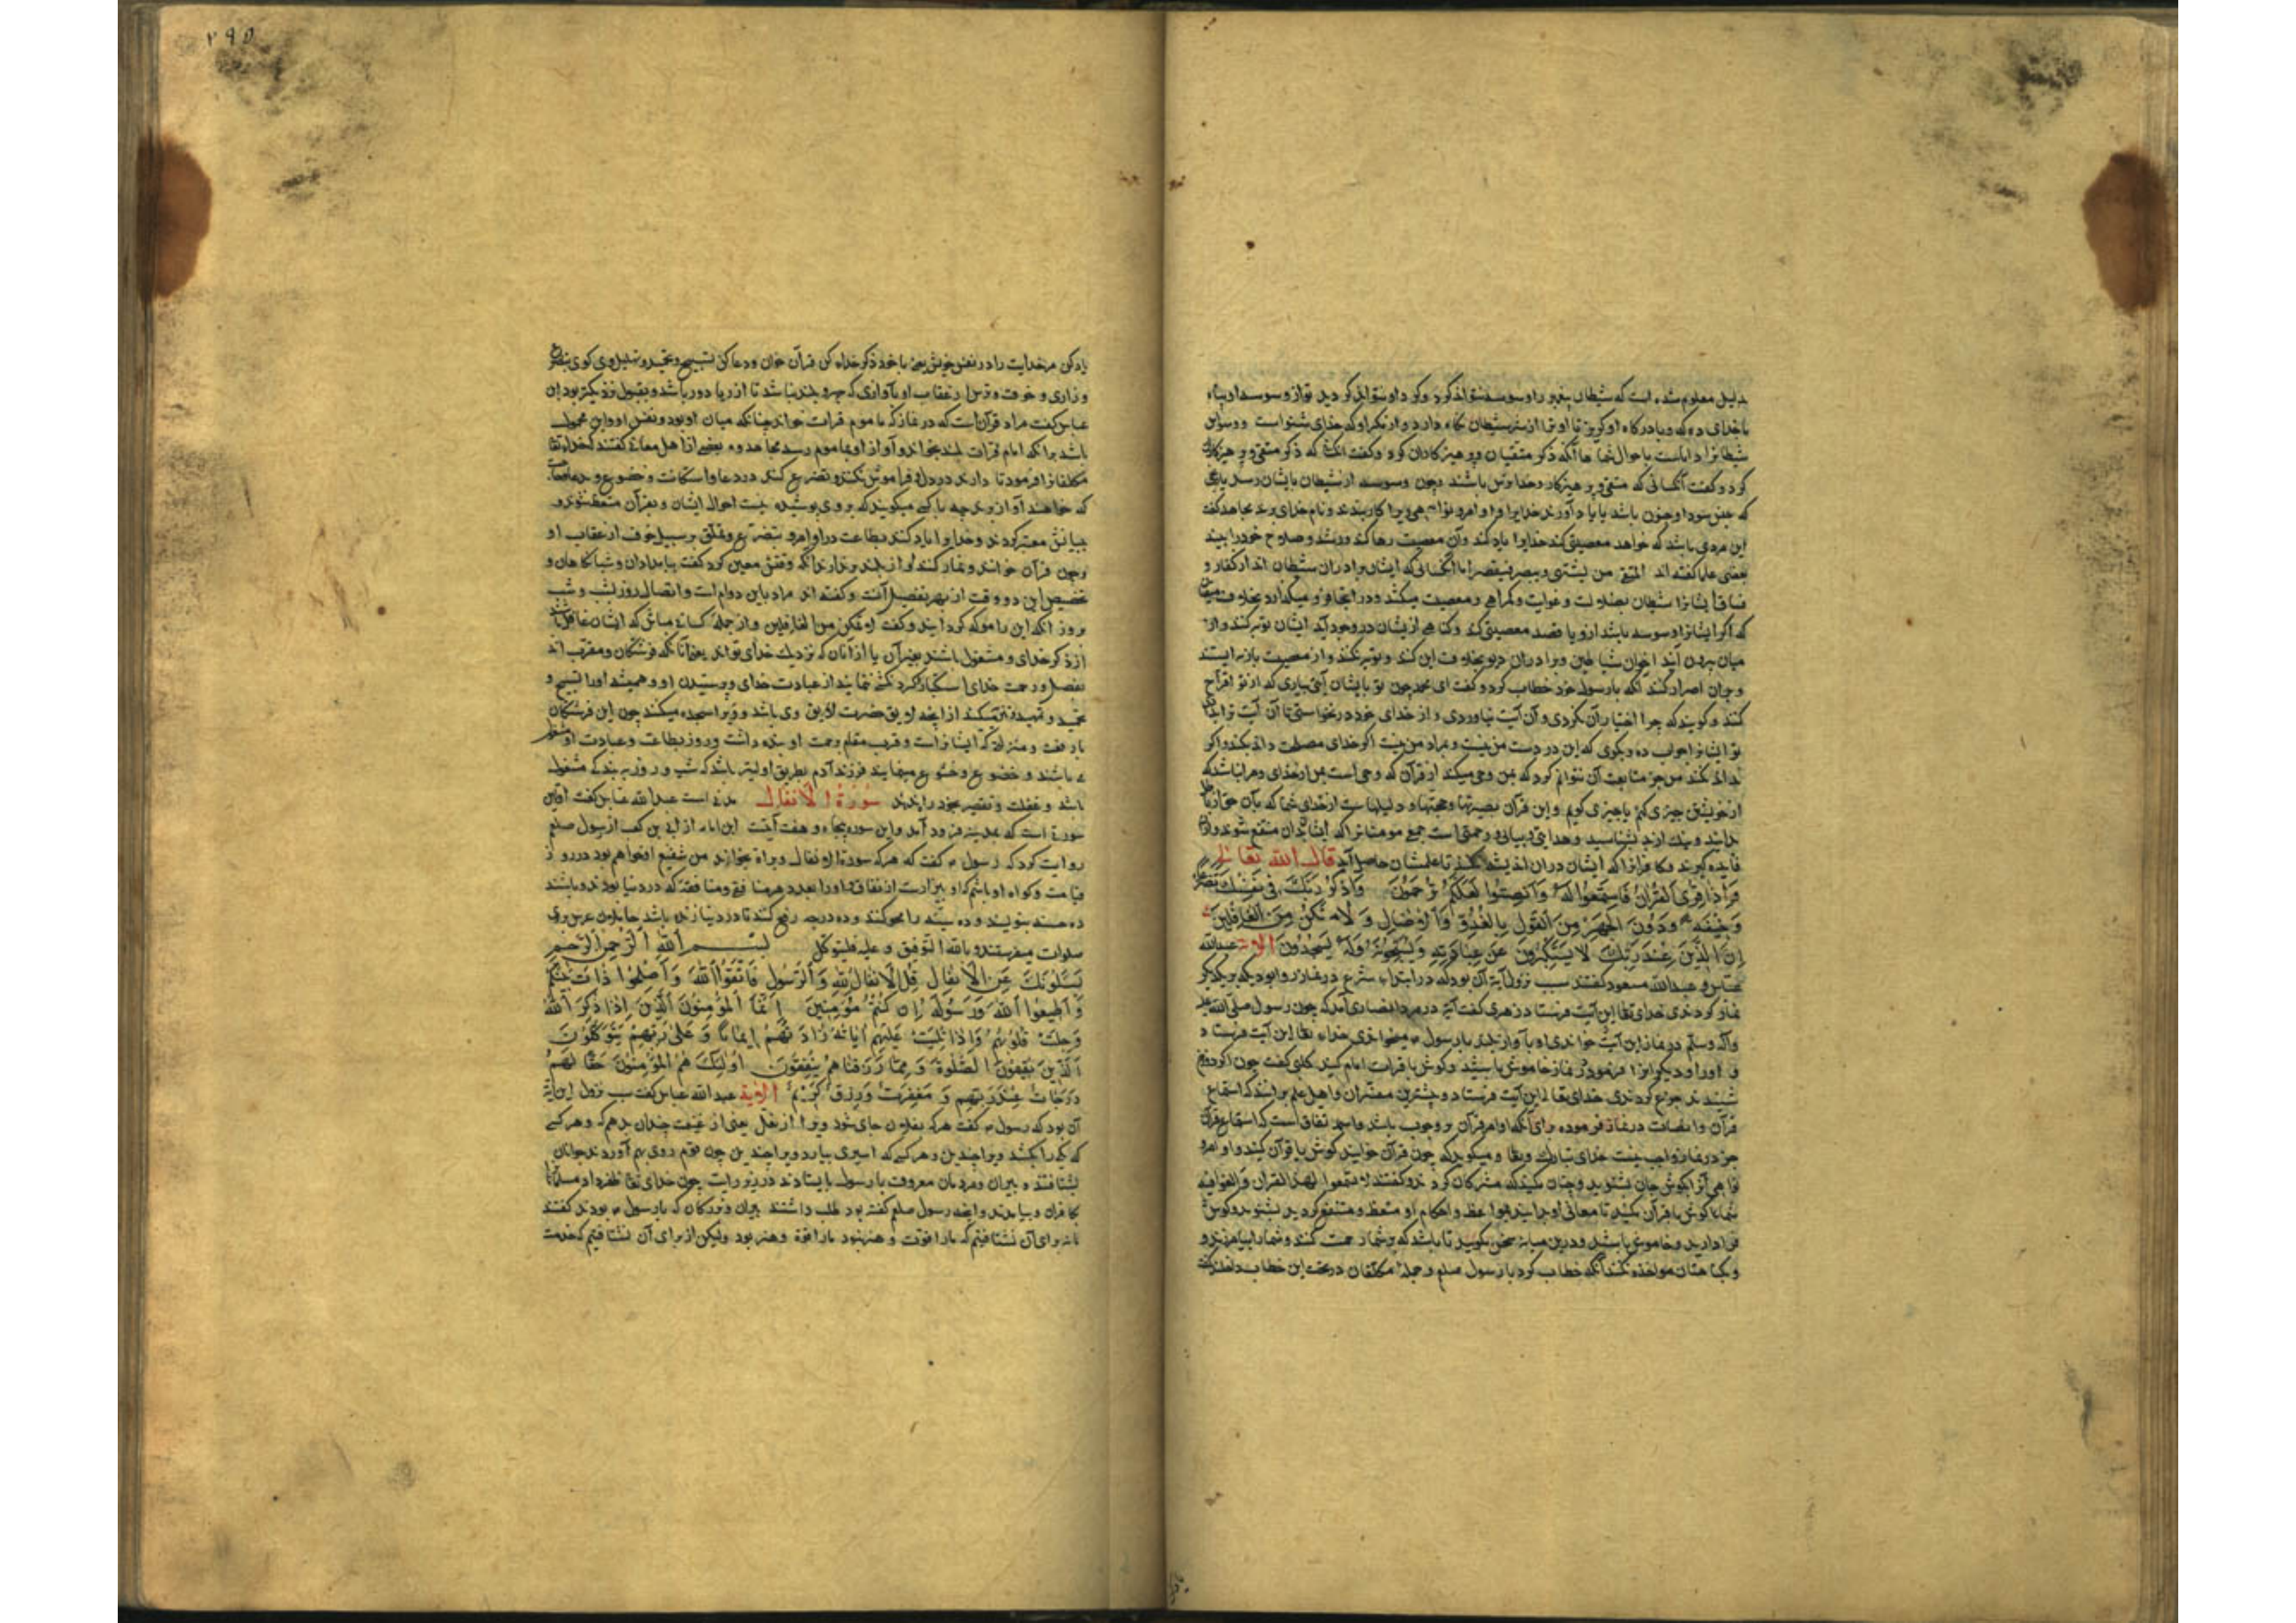 بدلیل معلوم شده است که شیطان پیغمبر را وسوسه نتواند کرد و کرد او نتواند کردید تو از وسوسه او پناه
با خدای ده که و با درکاه او کریز تا او ترا از شر شیطان نکاه دارد و از مکر او که خدای شنواست و وسواس
شیطانرا داناست باحوال شما ها آنکه ذکر متقیان و پرهیزکاران کرد و کفت که ذکر متقی و پرهیزکار
کرد و کفت آنکسانی که متقی و پرهیزکار و خدا ترس باشند چون وسوسه از شیطان بایشان رسد
که جنون باشد با یاد آورند خدایرا و اوامر و نواهی ویرا کار بندند و نام خدای برند مجاهد کفت
این مردی باشد که خواهد معصیتی کند خدایرا یاد کند و آن معصیت رها کند و رشد و صلاح خود را بیند
بعضی علما کفته اند المتقی من یشتهی و یبصر فیقصر اما آنکسانی که ایشان برادران شیطان اند از کفار و
فساق ایشانرا شیطان بضلالت و غوایت و کمراهی و معصیت میکشد و در آنجا و میکذارد بخلاف متقیان
که اکر ایشانرا وسوسه باشد ازو یا قصد معصیتی کند و کناهی از ایشان در وجود آید ایشان توبه کنند و از
میان بیرون آیند اخوان شیاطین و برادران دیو بخلاف این کند و توبه نکنند و از معصیت باز نه ایستند
و بران اصرار کنند آنکه با رسول خود خطاب کرد و کفت ای محمد چون تو بایشان آیتی نیاری که از تو اقتراح
کنند و کویند که چرا اختیار آن نکردی و آن آیت نیاوردی و از خدای خود درنخواستی تا آن آیت ترا
تو ایشانرا جواب ده و بکوی که این در دست من نیست و بمراد من نیست اکر خدای مصلحت داند بکند و اکر
نداند نکند من جز متابعت آن نتوانم کرد که بمن وحی میکند از قرآن که وحی است بمن از خدای و مرا نباشد که
از خویشتن چیزی کنم یا چیزی کویم و این قرآن بصیرتها و حجتها و دلیلهاست از خدای شما که بآن حق از باطل
بدانید و نیک از بد بشناسید و هدایتی و بیانی و رحمتی است جمیع مومنانرا که ایشان بدان منتفع شوند و ازان
فایده کیرند و کافرانرا که ایشان دران اندیشه نکنند تا علمشان حاصل آید قال الله تعالی
وَاِذَا قُرِئَ الْقُرْآنُ فَاسْتَمِعُوا لَهُ وَاَنْصِتُوا لَعَلَّكُمْ تُرْحَمُونَ وَاذْكُرْ رَبَّكَ فِي نَفْسِكَ تَضَرُّعًا
وَخِيفَةً وَدُونَ الْجَهْرِ مِنَ الْقَوْلِ بِالْغُدُوِّ وَالْآصَالِ وَلَا تَكُنْ مِنَ الْغَافِلِينَ
اِنَّ الَّذِينَ عِنْدَ رَبِّكَ لَا يَسْتَكْبِرُونَ عَنْ عِبَادَتِهِ وَيُسَبِّحُونَهُ وَلَهُ يَسْجُدُونَ الایة عبدالله
عباس و عبدالله مسعود کفتند سبب نزول آیة آن بود که در ابتداء شرع در نماز روا بودی که بر یکدیکر
نماز کردندی خدای تعالی این آیت فرستاد زهری کفت آیة در مردی انصاری آمد که چون رسول صلی الله علیه
وآله وسلم در نماز این آیت خواندی او بآواز بلند با رسول میخواندی خداء تعالی این آیت فرستاد
و او را و دیکرانرا فرمود در نماز خاموش باشید و کوش با قرات امام کنید کلبی کفت چون ذکر دوزخ
شنیدند جزع کردندی خدای تعالی این آیت فرستاد و بیشترین مفسران و اهل علم برانند که استماع
قرآن و انصات در نماز فرموده برای آنکه اوامر قرآن بر وجوب باشد و اتفاق است که استماع قرآن
جز در نماز واجب نیست خدای تبارک و تعالی میکوید که چون قرآن خوانند کوش با قرآن کنید و اوامر و
نواهی آنرا بکوش جان بشنوید و چنان مکنید که مشرکان کردند و کفتند لا تسمعوا لهذا القران والغوا فیه
شما کوش با قرآن کنید تا معانی او بدانید و بمواعظ و احکام او متعظ و منتفع کردید بشنوید و کوش
فرا دارید و خاموش باشید و درین میانه سخن مکویید تا باشد که بر شما رحمت کنند و شما را بیامرزند و
و بکناهتان مواخذه نکنند آنکه خطاب کرد با رسول صلعم و جملهٔ مکلفان در تحت این خطاب داخلند کفت
۲۹۵
یاد کن مر خدایت را در نفس خویش یعنی با خود ذکر خداء کن قرآن خوان و دعا کن تسبیح و تحمید و تهلیل وی کوی بتضرع
و زاری و خوف و ترس از عقاب او بآوازی که جهر و بلند نباشد تا از ریا دور باشد و بقبول نزدیکتر بود ابن
عباس کفت مراد قرآن است که در نماز که ماموم قرات خواند چنانکه میان او بود و نفس او و این محمول
باشد برآنکه امام قرات بلند بخواند و آواز او بماموم رسد مجاهد و بعضی از اهل معانی کفتند که خداء تعالی
مکلفانرا فرمود تا دارند در دل و فراموش نکنند و تضرع کنند در دعا و استکانت و خضوع و نه چنانکه
که خواهند آواز بردارند چه با کسی میکویند که بر وی پوشیده نیست احوال ایشان و بقرآن متعظ شوند و
ببیانش معتبر کردند و خدایرا یاد کنند بطاعت در اوامر و بتضرع و تملق بر سبیل خوف از عقاب او
و چون قرآن خوانند و نماز کنند آواز بلند برندارند آنکه وقتش معین کرد کفت بامدادان و شبانکاهان و
تخصیص این دو وقت از بهر تفضیل آنست و کفته اند مراد باین دوام است و اتصال روز بشب و شب
بروز آنکه این را موکد کردانید و کفت لا تکن من الغافلین و از جملهٔ کسانی مباش که ایشان غافل باشند
از ذکر خدای و مشغول باشند بغیر آن یا از آنان که نزدیک خدای تواند یعنی آنانکه فرشتکان و مقرب اند
بفضل و رحمت خدای استکبار و کردنکشی ننمایند از عبادت خدای و پرستیدن او و همیشه او را تسبیح و
تحمید و تمجید و تنزیه میکنند از آنچه لایق حضرت وی نباشد و ویرا سجده میکنند چون این فرشتکان
با رفعت و منزلت که ایشانراست و قرب بمقام رحمت او شب و روز بطاعت و عبادت او مشغول
می باشند و خضوع و خشوع مینمایند فرزند آدم بطریق اولیتر باشد که شب و روز به بندکی مشغول
باشد و غفلت و تقصیر بخود راه ندهد سورة الانفال مدنی است عبدالله عباس کفت اولین
سورة است که بمدینه فرود آمد و این سوره پنجاه و هفت آیتست ابن امامه از ابی بن کعب از رسول صلعم
روایت کرد که رسول کفت که هر که سورة الانفال و براة بخواند من شفیع او خواهم بود در روز
قیامت و کواه او باشم که او بیزارست از نفاق و او را بعدد هر منافق و منافقه که در دنیا بودند و باشند
ده حسنه بنویسند و ده سیئه را محو کنند و ده درجه رفع کنند تا در دنیا زنده باشد حاملان عرش بروی
صلوات میفرستند و بالله التوفیق و علیه فلیتوکل بسم الله الرحمن الرحیم
يَسْأَلُونَكَ عَنِ الْاَنْفَالِ قُلِ الْاَنْفَالُ لِلَّهِ وَالرَّسُولِ فَاتَّقُوا اللَّهَ وَاَصْلِحُوا ذَاتَ بَيْنِكُمْ
وَاَطِيعُوا اللَّهَ وَرَسُولَهُ اِنْ كُنْتُمْ مُؤْمِنِينَ اِنَّمَا الْمُؤْمِنُونَ الَّذِينَ اِذَا ذُكِرَ اللَّهُ
وَجِلَتْ قُلُوبُهُمْ وَاِذَا تُلِيَتْ عَلَيْهِمْ آيَاتُهُ زَادَتْهُمْ اِيمَانًا وَعَلَى رَبِّهِمْ يَتَوَكَّلُونَ
اَلَّذِينَ يُقِيمُونَ الصَّلٰوةَ وَمِمَّا رَزَقْنَاهُمْ يُنْفِقُونَ اُولٰئِكَ هُمُ الْمُؤْمِنُونَ حَقًّا لَهُمْ
دَرَجَاتٌ عِنْدَ رَبِّهِمْ وَمَغْفِرَةٌ وَرِزْقٌ كَرِيمٌ الایة عبدالله عباس کفت سبب نزول این آیة
آن بود که رسول کفت هر که بفلان جای شود ویرا از نفل یعنی از غنیمت چندان بدهم و هر کس
که یکی را بکشد ویرا چندین و هر کس که اسیری بیارد ویرا چندین چون قوم روی بهم آوردند جوانان
بشتافتند و پیران و مردمان معروف با رسول بایستادند در زیر رایت چون خدای تعالی ظفر داد مسلمانانرا
کافران و بیامدند و آنچه رسول صلعم کفته بود طلب داشتند پیران و بزرکان که با رسول بودند کفتند
ما نه برای آن نشتافتیم که ما را قوت و هنر نبود ما را قوة و هنر بود ولیکن از برای آن نشتافتیم که خدمت